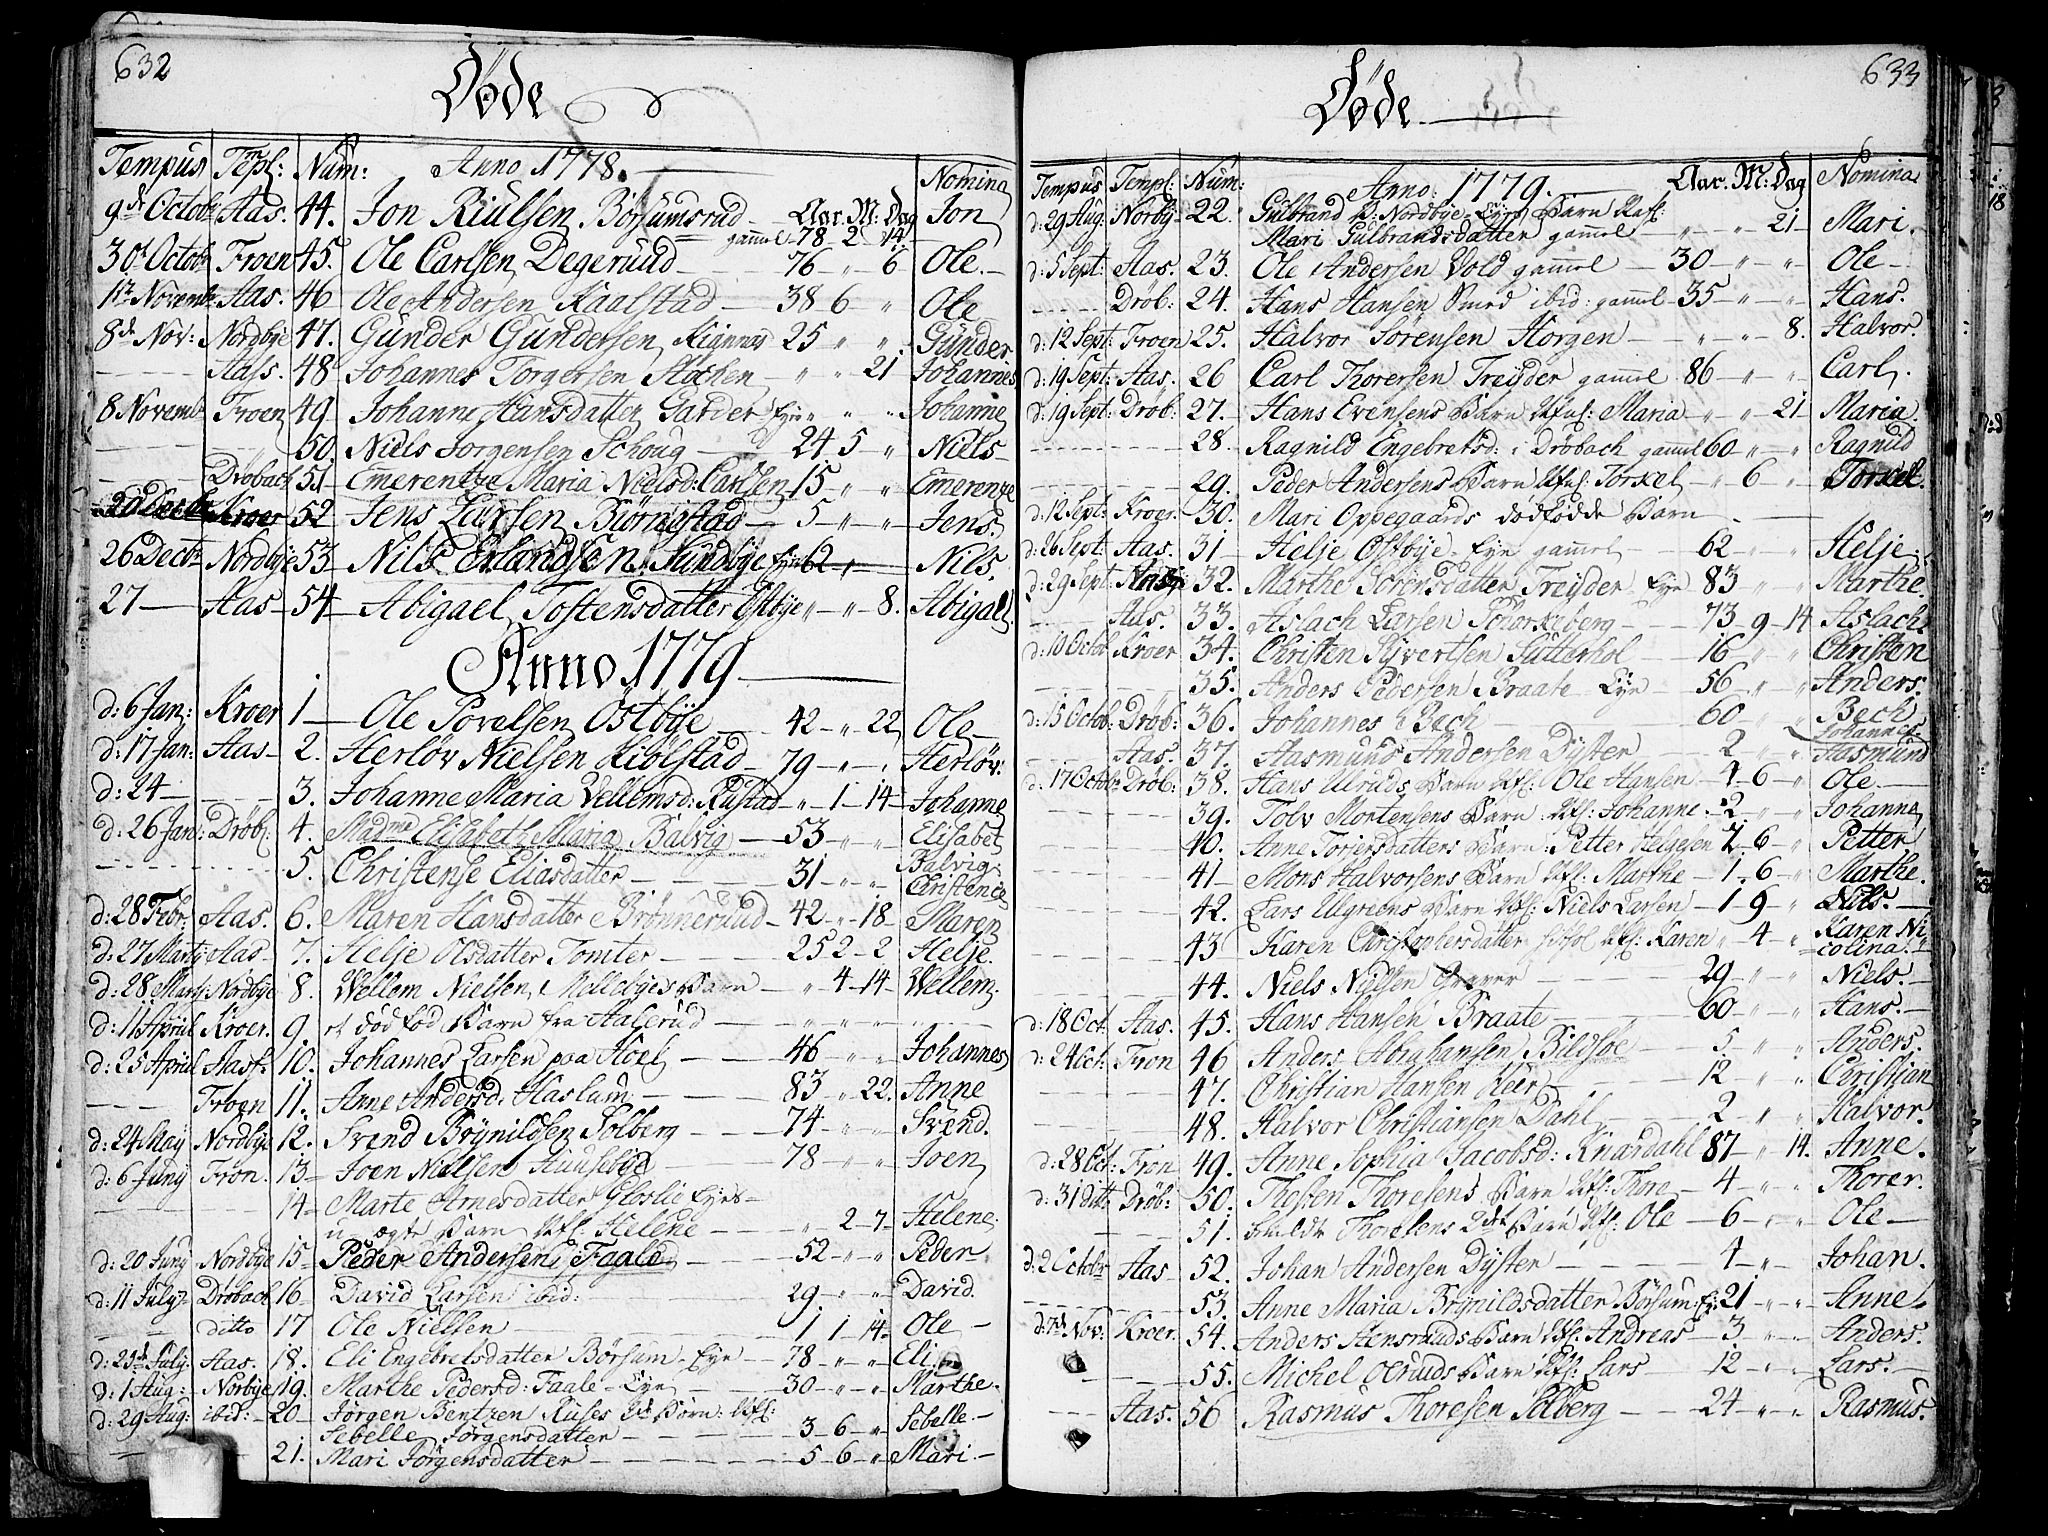 632
Døde
Tempus Templ: Num: Anno 1778. Nomina
9de Octobr Aas. 44. Jon Riulsen Börsumsrud Aar. M: Dag Jon
gammel 78 2 14
30t Octobr Froen 45. Ole Carlsen Degeruud 76 " 6 Ole.
Novembr Aas. 46 Ole Andersen Kaalstad 38 6 " Ole
8de Nov: Nordbÿe 47. Gunder Gundersen 25 " " Gunder
Aass. 48 Johannes Torgersen " " 21 Johannes
8 Novembr Froen 49 Johanne Hansdatter Garder Eye " " " Johanne
50. Niels Jorgensen Schoug 24 5 " Niels
Drøbach 51 Emerentze Maria Nielsd: Carlsen 15 " " Emerenze
20 Decbr Kroer 52 Jens Larsen Biörnestad 5 " " Jens
26 Decbr Nordbÿe 53 Nils Erlandsen Sundbÿe Eye 62 " Nils.
27 Aas 54 Abigael Tostensdatter Østbye " " 8. Abigael
Anno 1779
d: 6 Jan: Kroer 1 Ole Povelsen Östbÿe 42 " 22 Ole
d: 17 Jan: Aas 2. Herløv Nielsen Kiølstad 79 " " Herløv:
d: 24 3. Johanne Maria Vellemsd: Rustad " 1 14 Johanne
d: 26 Jan: Drøb: 4. Madme Elisabeth Maria Balvig 53 " " Elisabet
Balvig
5. Christense Eliasdatter 31 " " Christence
d: 28 Febr: Aas. 6. Maren Hansdatter Brønnerud 42 " 18 Maren
d: 27 Martj Aas 7. Helje Olsdatter Tomter 25 2 2 Helje.
d: 28 Martj Nordbÿe 8. Vellem Nielsen Mellebyes Barn " 4 14 Vellem
d: 11 April Kroer. 9 et død fød Barn fra Aalerud " " "
d: 25 April Aass. 10. Johannes Larsen paa Hoel 46 " " Johannes
Froen 11. Anne Andersd: Haslum 83 " 22. Anne
d: 24 May Nordbÿe 12. Svend Brÿnildsen Solberg 74 " " Svend.
d: 6 Juny Frøn. 13 Joen Nielsen Huusebÿe 78 " " Joen
14 Marte Arnesdatter Gloslie Eyes
u ægte Barn Nfl: Helene " 2 7 Helene
d: 20 Juny Nordbÿe 15 Peder Andersen Faale 52 " " Peder
d: 11 July Drøbach 16 David Larsen ibid: 29 " " David.
ditto 17 Ole Nielsen 1 1 14 Ole
d: July Aas. 18. Eli Engebretsdatter Börsum Eye 78 " " Eli
d: 1 Aug: Norbÿe 19. Marthe Pedersd: Faale Eye 30 " " Marthe
d: 29 Aug: ibid: 20 Jørgen Bentzen Ruses Børn: Nfl:
Sebelle Jørgensdatter 3 6 " Sebelle
21. Mari Jørgensdatter 5 6 " Mari
633
Døde
Tempus Templ: Num: Anno: 1779. Aar. M: Dag Nomina
d: 29 Aug: Norby 22. Gulbrand Nordbye Eye Barn
Mari Gulbrandsdatter gammel " " 21 Mari.
d: 5 Sept: Aas. 23. Ole Andersen Vold gammel 30 " " Ole
Drøb: 24. Hans Hansen Smed ibid: gammel 35 " " Hans.
d: 12 Sept: Froen 25. Halvor Sørensen Horgen " " 8. Halvor.
d: 19 Sept: Aas. 26 Carl Thorersen Treÿder gammel 86 " " Carl.
d: 19 Sept: Drøb: 27. Hans Evensens Barn Nfl: Maria " " 21 Maria
28. Ragnild Engebretsd: i Drøbach gammel 60 " " Ragnild
29. Peder Andersens Barn Nfl: Torkel " 6 " Torkel.
d: 12 Sept: Kroer. 30. Mari Oppegaards dødfødde Barn
d: 26 Sept: Aas. 31 Helje Østbÿe Eye gammel 62 " " Helje
d: 29 Sept: 32. Marthe Sörensdatter Treÿder Eye 83 " " Marthe.
Aas. 33. Aslach Larsen Sönorkeberg 73 9 14 Aslach
d: 10 Octobr Kroer 34. Christen Syvertsen Sutterhol 16 " " Christen
35. Anders Pedersen Braate Eye 56 " " Anders.
d: 15 Octob: Drøb: 36. Johannes Bech 60 " " Bech
Johannes
Aas. 37. Aasmund Andersen Dÿster 2 " " Aasmund
d: 17 Octobr Drøb: 38. Hans Ulruds Barn Nfl: Ole Hansen 4 6 " Ole
39. Tolv Mortensens Barn Nfl: Johanne 2 " " Johanne
40. Anne Torjersdatters Barn: Petter Helgesen 7 6 " Petter
41 Mons Halvorsens Barn Nfl: Marthe 1 6 " Marthe.
42. Lars Ulgreens Barn Nfl: Niels Larsen 1 9 " Nils.
43 Karen Christophersdatter Nfl: Karen " 4 " Karen Ni
colina.
44. Niels Nielsen Graver 29 " " Niels.
d: 18 Oct. Aas. 45. Hans Hansen Braate 60 " " Hans.
d: 24 Oct: Fron 46 Anders Abrahamsen Bildsøe 5 " " Anders.
47. Christian Hansen Heer 12 " " Christian
48. Halvor Christiansen Dahl 2 " " Halvor.
d: 28 Oct: Fron 49. Anne Sophia Jacobsd: Knardahl 87 " 14. Anne.
d: 31 ditt: Drøb: 50. Thoresens Barn Nfl: Thore 4 " " Thorer.
51. Thoresens 2det Barn Nfl: Ole 6 " " Ole
d: 2 Octobr Aas 52. Johan Andersen Dÿsten 4 " " Johan.
53. Anne Maria Brÿnildsdatter Börsum: Ey: 21 " " Anne
d: 7de Nov: Kroer. 54. Anders Stensruds Barn Nfl: Andreas 3 " " Anders.
55. Michel Olruds Barn Nfl: Lars 12 " " Lars.
Aas. 56 Rasmus Thoresen Solberg 24 " " Rasmus.